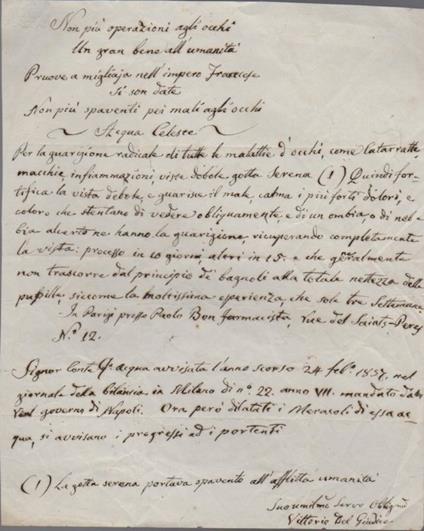 Non più operazioni agli occhi
Un gran bene all'umanità
Pruove a migliaja nell'impero Francese
Si son date
Non più spaventi pei mali agli occhi
~ Acqua Celeste ~
Per la guarigione radicale di tutte le malattie d'occhi, come Cataratte,
macchie, infiammazioni, viste debole, gotta Serena (1) Quindi for-
tifica la vista debole, e guarisce il male, calma i più forti dolori, e
coloro che stentano di vedere obliquamente, e di un ombra, o di neb-
bia averne hanno la guarigione, ricuperando completamente
la vista: processo in 10 giorni, altri in 15. e che generalmente
non trascorre dal principio de' bagnoli alla totale nettezza della
pupilla, siccome la moltissima esperienza che sole tre Settimane
In Parigi presso Paolo Bon farmacista, rue des Saints-Peres
N.º 12.
Signor Conte L'acqua avvisata l'anno scorso 24 feb.º 1857, nel
giornale della bilancia in Milano di nº 22. anno VII. mandato dal
governo di Napoli. Ora però dilatati i Meracoli di essa ac-
qua, si avvisano i progressi ed i portenti
(1) La gotta serena portava spavento all'afflitta umanità
Suo umilmo Servo Obbligmo
Vittorio Del Giudice